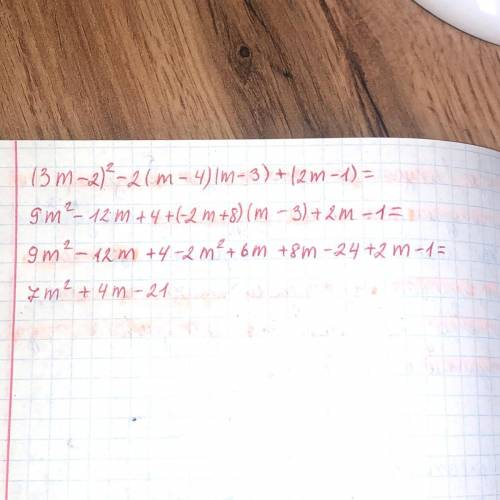 (3m-2)²-2(m-4)(m-3)+(2m-1)=
9m²-12m+4+(-2m+8)(m-3)+2m-1=
9m²-12m+4-2m²+6m+8m-24+2m-1=
7m²+4m-21